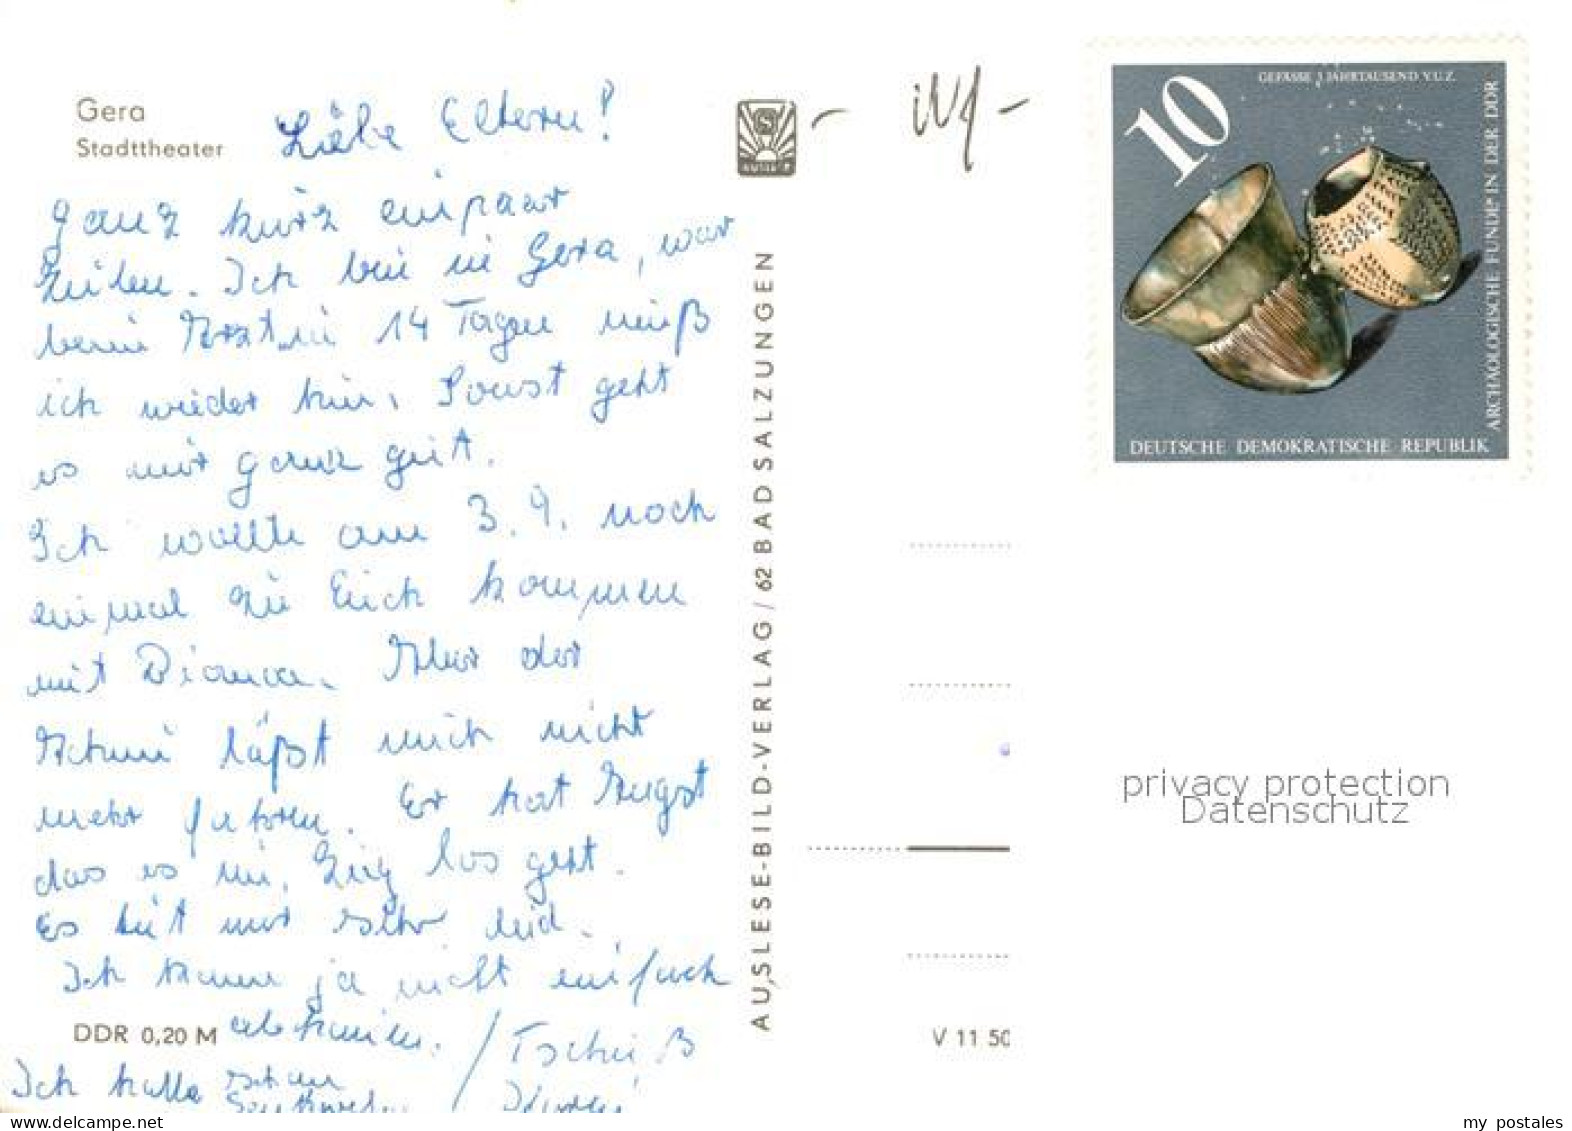 Gera
Stadttheater
Liebe Eltern!
ganz kurz ein paar
Zeilen. Ich bin in Gera, war
beim Arzt, in 14 Tagen muß
ich wieder hin. Sonst geht
es mir ganz gut.
Ich wollte am 3.9. noch
einmal zu Euch kommen
mit Bianca. Aber der
Achim läßt mich nicht
mehr fahren. Er hat Angst
das es im Zug los geht.
Es tut mir sehr leid.
Ich kann ja nicht einfach
abhauen. / Tschüß
Ich hatte schon
DDR 0,20 M
AUSLESE-BILD-VERLAG / 62 BAD SALZUNGEN
V 11 50
10
GEFÄSSE 3. JAHRTAUSEND V.U.Z.
ARCHÄOLOGISCHE FUNDE IN DER DDR
DEUTSCHE DEMOKRATISCHE REPUBLIK
privacy protection
Datenschutz
delcampe.net
my_postales